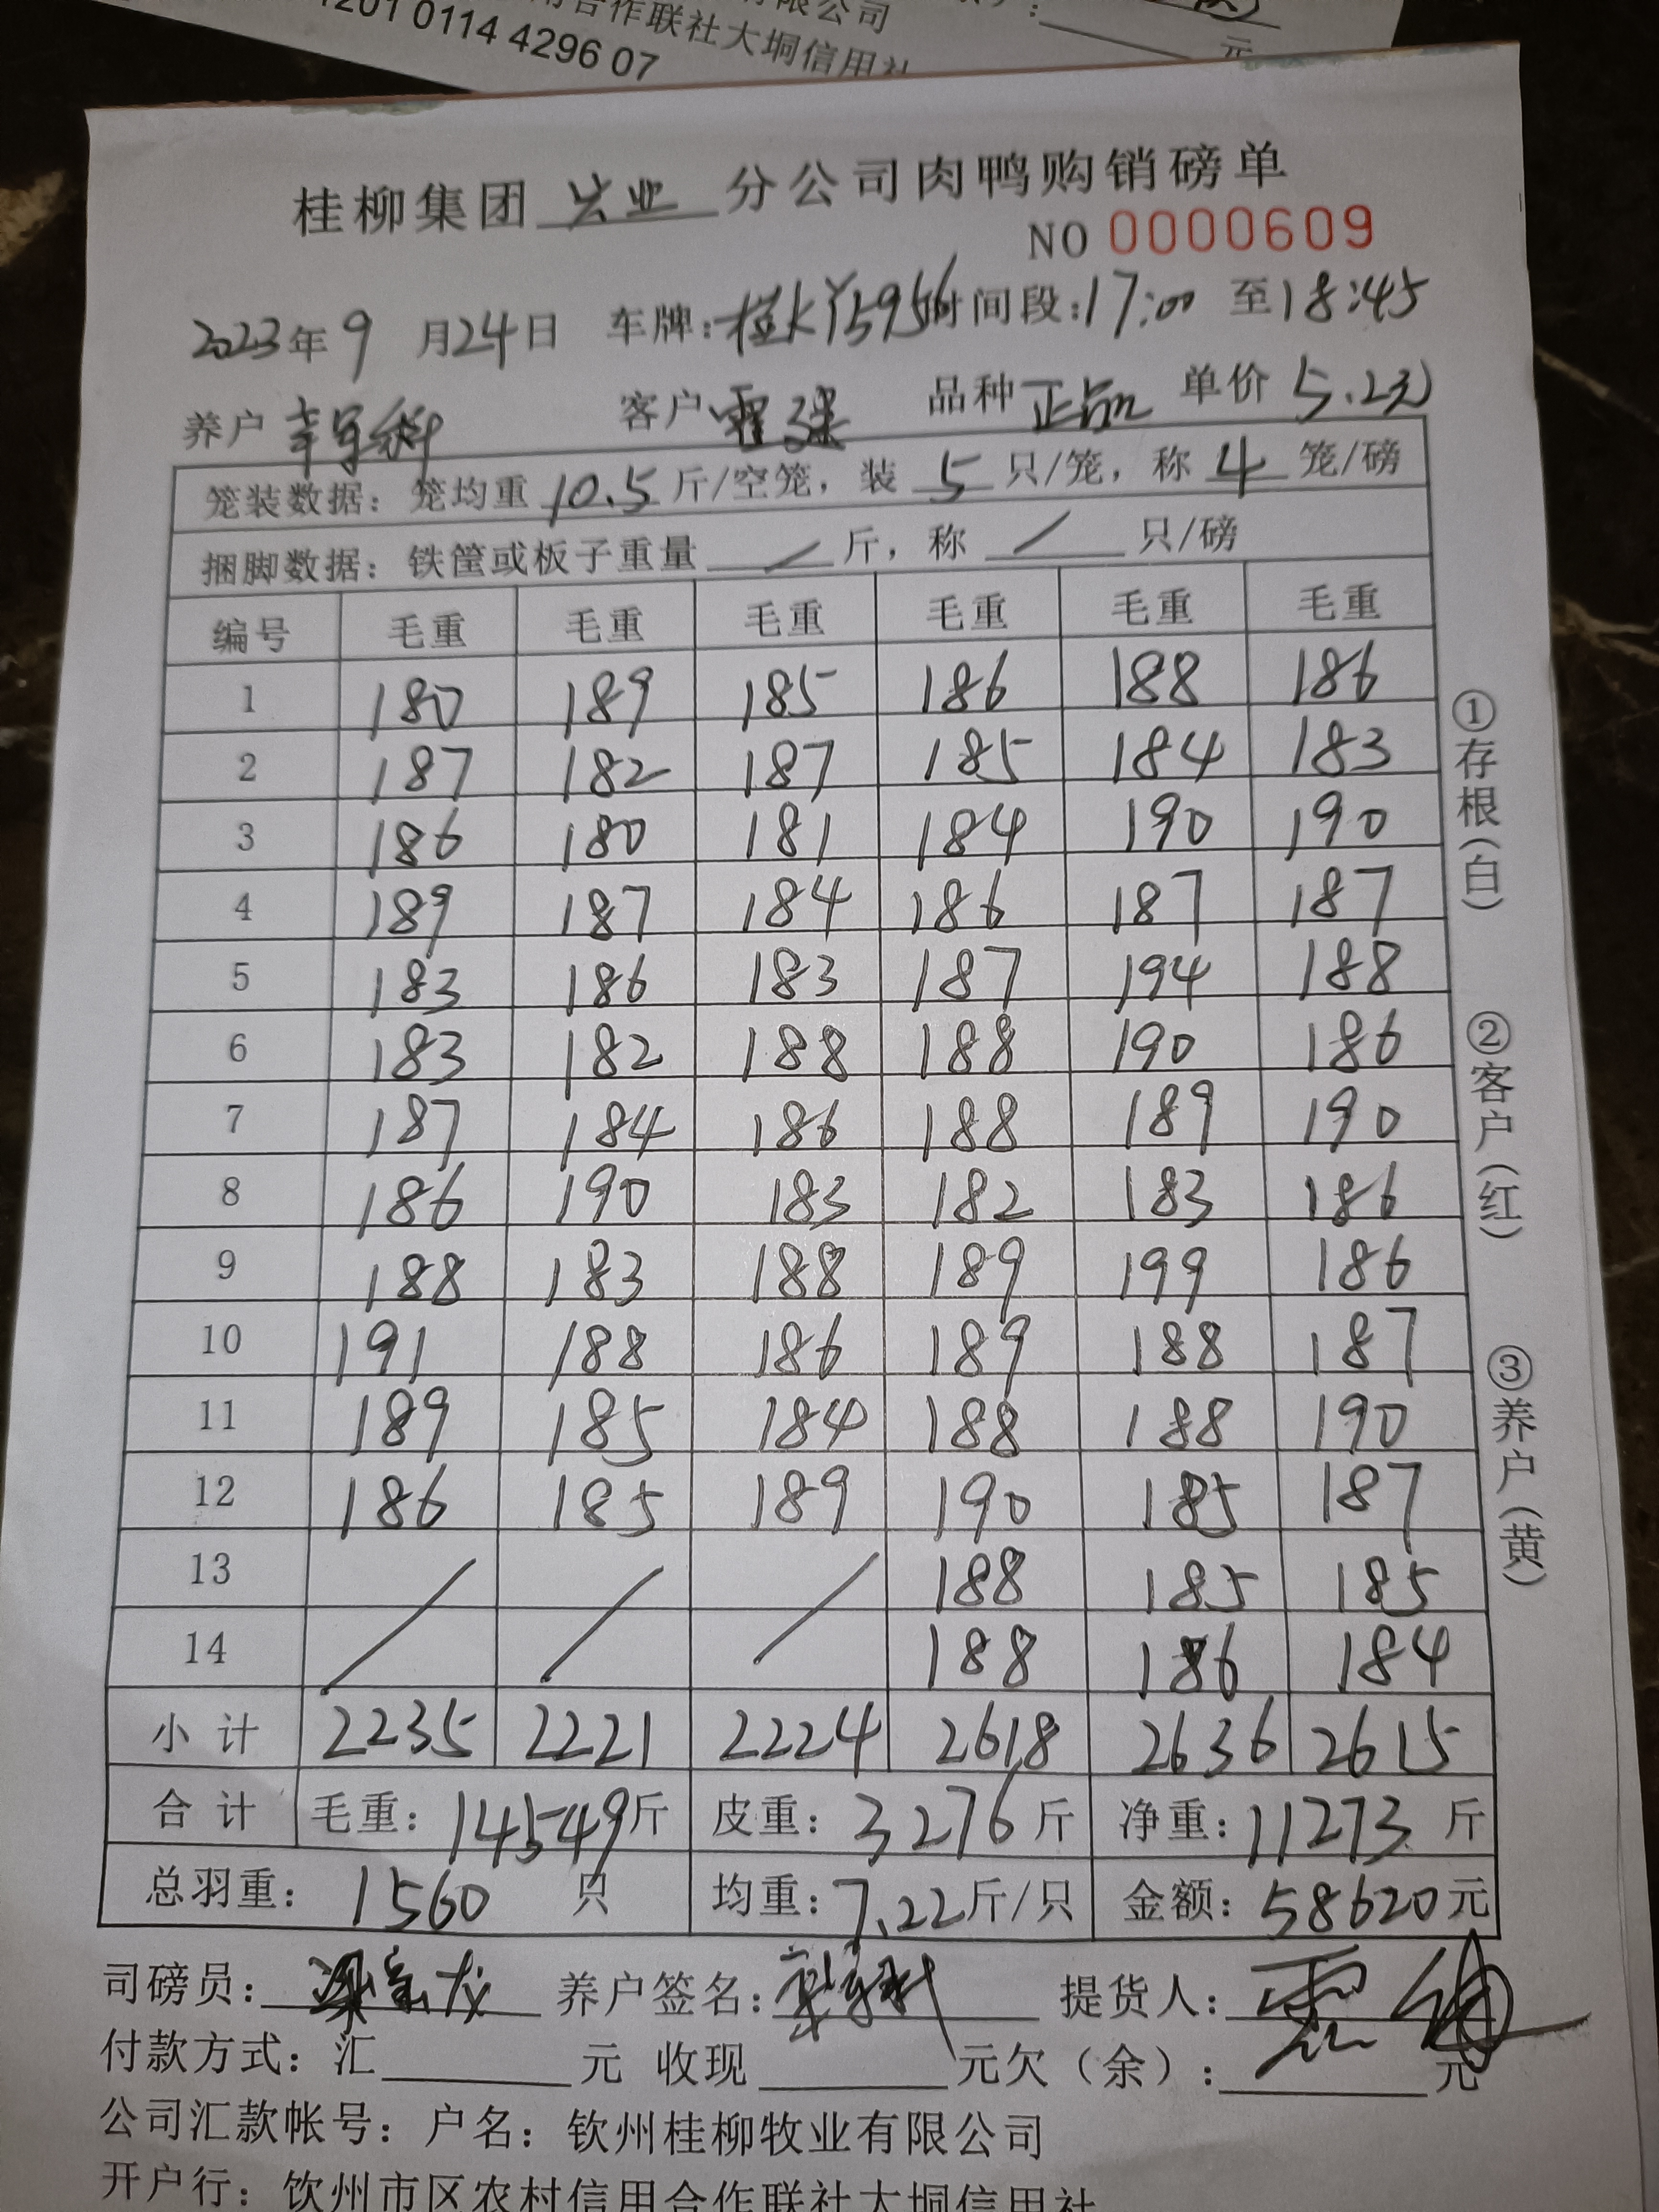 有限公司
用合作联社大垌信用社
1201 0114 4296 07
元
桂柳集团 兴业 分公司肉鸭购销磅单
NO 0000609
2023年9月24日 车牌:桂KY5956 时间段:17:00 至18:45
养户 客户 品种 正品 单价 5.2元
笼装数据: 笼均重 10.5 斤/空笼, 装 5 只/笼, 称 4 笼/磅
捆脚数据: 铁筐或板子重量 / 斤, 称 / 只/磅
编号 毛重 毛重 毛重 毛重 毛重 毛重
1 180 189 185 186 188 186
2 187 182 187 185 184 183
3 186 180 181 184 190 190
4 189 187 184 186 187 187
5 183 186 183 187 194 188
6 183 182 188 188 190 186
7 187 184 186 188 189 190
8 186 190 183 182 183 186
9 188 183 188 189 199 186
10 191 188 186 189 188 187
11 189 185 184 188 188 190
12 186 185 189 190 185 187
13 / / / 188 185 185
14 188 186 184
小计 2235 2221 2224 2618 2636 2615
合计 毛重: 14549斤 皮重: 3276斤 净重: 11273斤
总羽重: 1560 只 均重: 7.22斤/只 金额: 58620元
司磅员: 养户签名: 提货人:
付款方式: 汇 元 收现 元欠（余）: 元
公司汇款帐号: 户名: 钦州桂柳牧业有限公司
开户行: 钦州市区农村信用合作联社大垌信用社
①存根（白）
②客户（红）
③养户（黄）